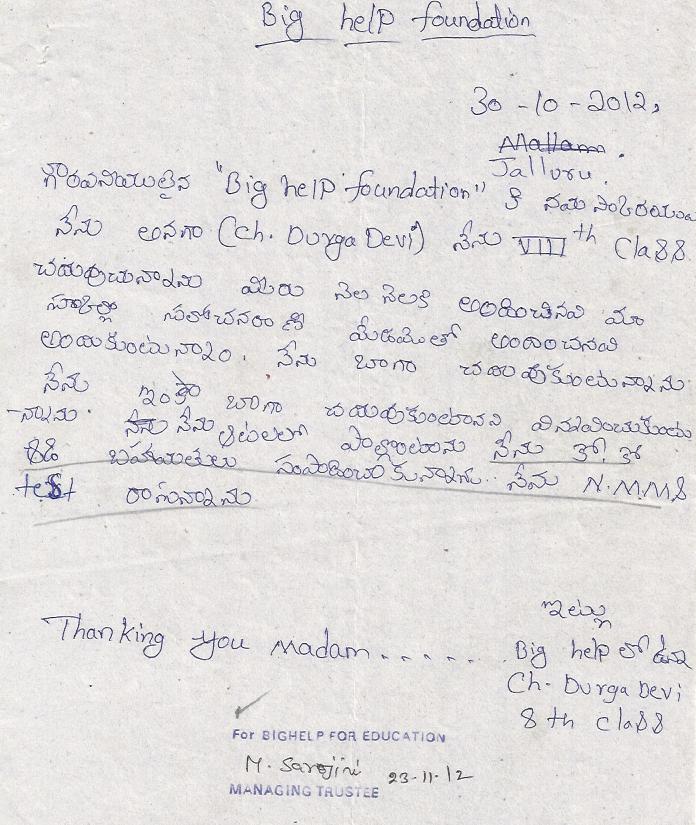 Big help foundation
30-10-2012,
Mallam.
Jalluru.
గౌరవనియులైన "Big help foundation" కి నమ
నేను అనగా (ch. Durga Devi) నేను VIII th Class
చదువుచున్నాను మీరు నెల నెలకి అందించినవి మా
మేడమ్‌తో అందించినవి
అందుకుంటున్నాం. నేను బాగా చదువుకుంటున్నాను
నేను ఇంకా బాగా చదువుకుంటానని విన్నవించుకుంటు
-న్నాను. నేను నేను ఆటలలో పాల్గొంటాను నేను కో కో
బహుమతులు సంపాదించుకున్నాను.. నేను N.M.M.S
test రాసున్నాను
ఇట్లు
Thanking you Madam....... Big help లో ఉన్న
Ch. Durga Devi
8 th class
For BIGHELP FOR EDUCATION
M. Sarojini 23-11-12
MANAGING TRUSTEE